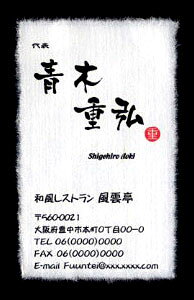 代表
青木
重弘
重
Shigehiro Aoki
和風レストラン 風雲亭
〒560-0021
大阪府豊中市本町0丁目00-0
TEL 06(0000)0000
FAX 06(0000)0000
E-mail Fuuntei@xxxxxxx.com